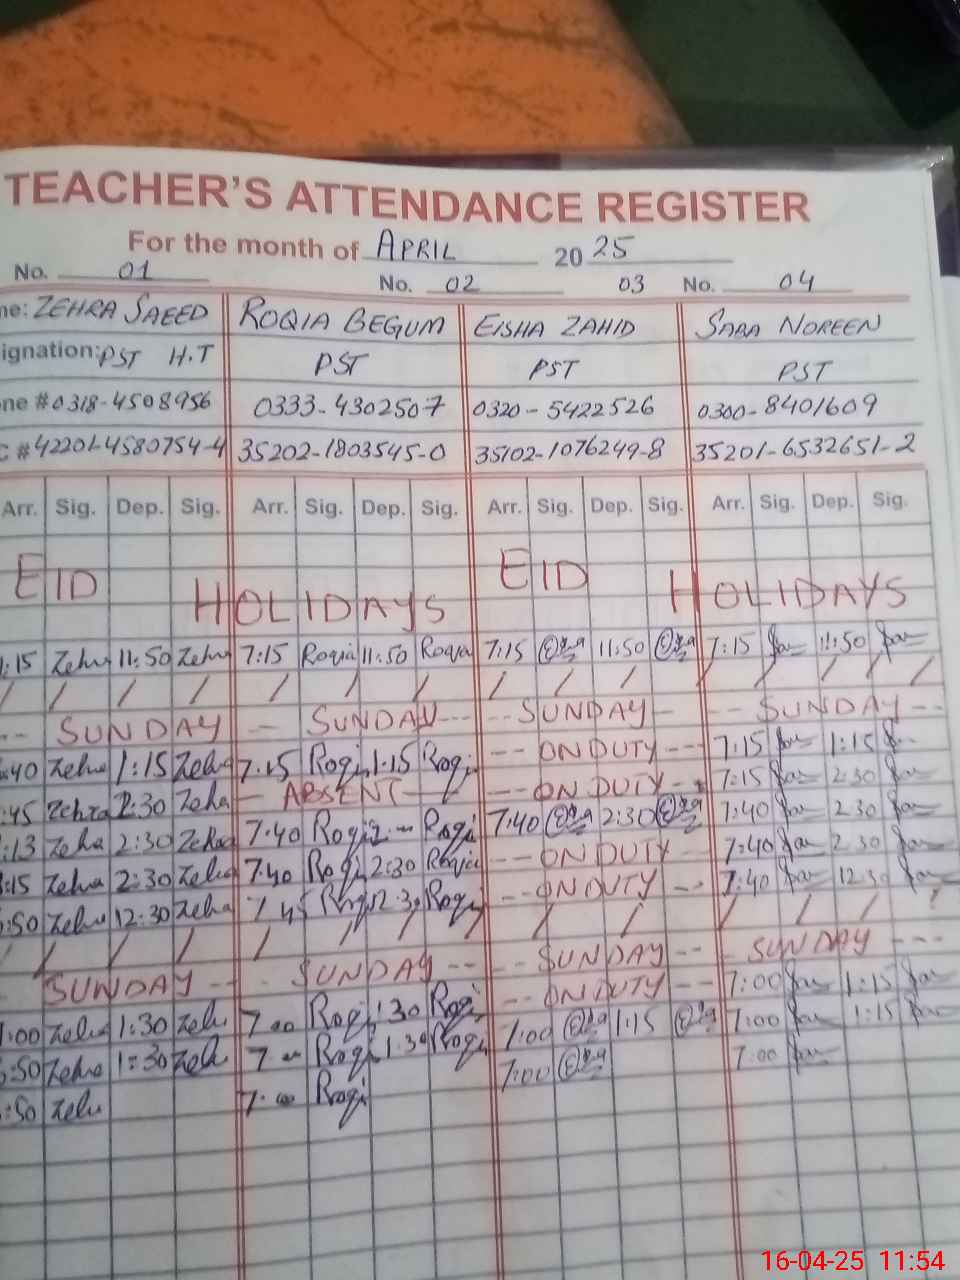 TEACHER'S ATTENDANCE REGISTER
For the month of APRIL 2025
No. 01 No. 02 03 No. 04
ne: ZEHRA SAEED ROQIA BEGUM EISHA ZAHID SABA NOREEN
ignation: PST H.T PST PST PST
one # 0318-4508956 0333-4302507 0320-5422526 0300-8401609
C # 42201-4580754-4 35202-1803545-0 35102-1076249-8 35201-6532651-2
Arr. Sig. Dep. Sig. Arr. Sig. Dep. Sig. Arr. Sig. Dep. Sig. Arr. Sig. Dep. Sig.
EID HOLIDAYS EID HOLIDAYS
:15 Zehra 11:50 Zehra 7:15 Roqia 11:50 Roqia 7:15 11:50 7:15 11:50
/ / / / / / / / / / / / / /
-- SUNDAY -- SUNDAY --- -- SUNDAY -- -- SUNDAY --
:40 Zehra 1:15 Zehra 7:15 Roqi 1:15 Roqi --- ON DUTY --- 7:15 1:15
:45 Zehra 2:30 Zehra -- ABSENT -- -- ON DUTY -- 7:15 2:30
:13 Zehra 2:30 Zehra 7:40 Roqi Roqi 7:40 2:30 7:40 2:30
:15 Zehra 2:30 Zehra 7:40 Roqi 2:30 Roqia -- ON DUTY 7:40 2:30
:50 Zehra 12:30 Zehra 7:45 Roqi 12:30 Roqi -- ON DUTY -- 7:40 12:30
/ / / / / / / / / / / /
SUNDAY -- SUNDAY -- -- SUNDAY -- -- SUNDAY ---
:00 Zehra 1:30 Zehra 7:00 Roqi 1:30 Roqi -- ON DUTY -- 7:00 1:15
:50 Zehra 1:30 Zehra 7:00 Roqi 1:30 Roqi 7:00 1:15 7:00 1:15
:50 Zehra 7:00 Roqi 7:00 7:00
16-04-25 11:54